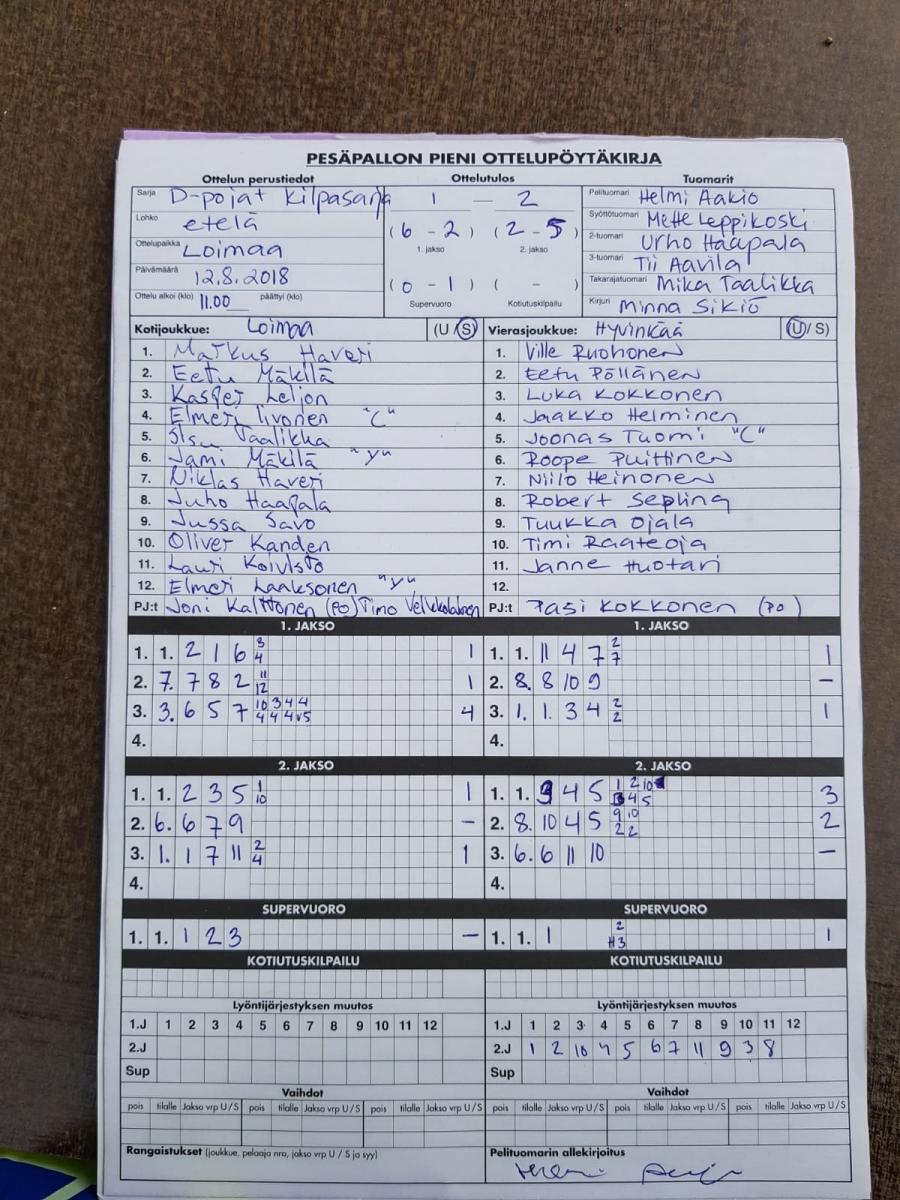 PESÄPALLON PIENI OTTELUPÖYTÄKIRJA
Ottelun perustiedot Ottelutulos Tuomarit
Sarja D-pojat kilpasarja 1 — 2 Pelituomari Helmi Aakio
Lohko etelä (6 - 2) (2 - 5) Syöttötuomari Mette Leppikoski
1. jakso 2. jakso 2-tuomari Urho Haapala
Ottelupaikka Loimaa 3-tuomari Tii Aavila
Päivämäärä 12.8.2018 (0 - 1) ( - ) Takarajatuomari Mika Taalikka
Ottelu alkoi (klo) 11.00 päättyi (klo) Supervuoro Kotiutuskilpailu Kirjuri Minna Sikiö
Kotijoukkue: Loimaa (U / S) Vierasjoukkue: Hyvinkää (U / S)
1. Markus Haveri 1. Ville Ruohonen
2. Eetu Mäkilä 2. Eetu Pöllänen
3. Kasper Leijon 3. Luka Kokkonen
4. Elmeri Iivonen "C" 4. Jaakko Helminen
5. Sisu Taalikka 5. Joonas Tuomi "C"
6. Jami Mäkilä "y" 6. Roope Puittinen
7. Niklas Haveri 7. Niilo Heinonen
8. Juho Haapala 8. Robert Sepling
9. Jussa Savo 9. Tuukka Ojala
10. Oliver Kanden 10. Timi Raateoja
11. Lauri Koivisto 11. Janne Huotari
12. Elmeri Laaksonen "y" 12.
PJ:t Joni Kalttonen (PO) Timo PJ:t Pasi Kokkonen (PO)
1. JAKSO 1. JAKSO
1. 1. 2 1 6 3 4 1 1. 1. 11 4 7 2 7 1
2. 7. 7 8 2 11 12 1 2. 8. 8 10 9 –
3. 3. 6 5 7 10 3 4 4 4 4 4 v5 4 3. 1. 1. 3 4 2 2 1
4. 4.
2. JAKSO 2. JAKSO
1. 1. 2 3 5 1 10 1 1. 1. 9 4 5 1 2 10 3 4 5 3
2. 6. 6 7 9 – 2. 8. 10 4 5 9 10 2 2 2
3. 1. 1 7 11 2 4 1 3. 6. 6 11 10 –
4. 4.
SUPERVUORO SUPERVUORO
1. 1. 1 2 3 – 1. 1. 1 2 #3 1
KOTIUTUSKILPAILU KOTIUTUSKILPAILU
Lyöntijärjestyksen muutos Lyöntijärjestyksen muutos
1.J 1 2 3 4 5 6 7 8 9 10 11 12 1.J 1 2 3 4 5 6 7 8 9 10 11 12
2.J 2.J 1 2 10 4 5 6 7 11 9 3 8
Sup Sup
Vaihdot Vaihdot
pois tilalle Jakso vrp U / S pois tilalle Jakso vrp U / S pois tilalle Jakso vrp U / S pois tilalle Jakso vrp U / S pois tilalle Jakso vrp U / S pois tilalle Jakso vrp U / S
Rangaistukset (joukkue, pelaaja nro, jakso vrp U / S ja syy) Pelituomarin allekirjoitus